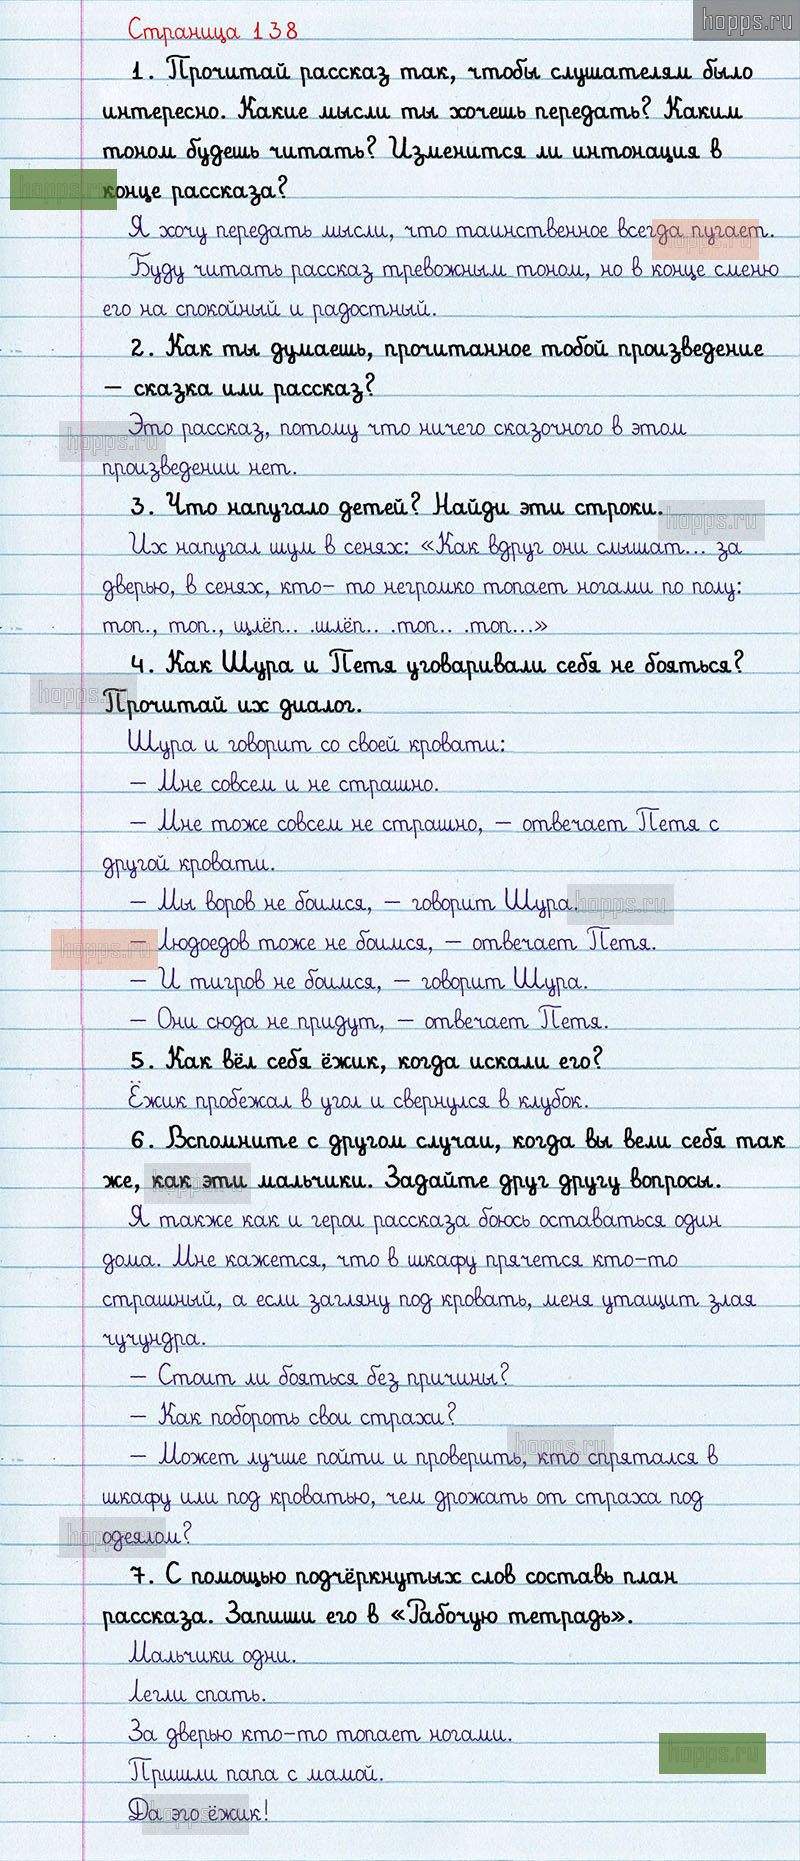 hopps.ru
Страница 138
1. Прочитай рассказ так, чтобы слушателям было
интересно. Какие мысли ты хочешь передать? Каким
тоном будешь читать? Изменится ли интонация в
hopps.ru
конце рассказа?
Я хочу передать мысли, что таинственное всегда пугает.
hopps.ru
Буду читать рассказ тревожным тоном, но в конце сменю
его на спокойный и радостный.
2. Как ты думаешь, прочитанное тобой произведение
– сказка или рассказ?
Это рассказ, потому что ничего сказочного в этом
hopps.ru
произведении нет.
3. Что напугало детей? Найди эти строки.
hopps.ru
Их напугал шум в сенях: «Как вдруг они слышат... за
дверью, в сенях, кто- то негромко топает ногами по полу:
топ., топ., щлёп.. .шлёп.. .топ.. .топ...»
4. Как Шура и Петя уговаривали себя не бояться?
hopps.ru
Прочитай их диалог.
Шура и говорит со своей кровати:
– Мне совсем и не страшно.
– Мне тоже совсем не страшно, – отвечает Петя с
другой кровати.
– Мы воров не боимся, – говорит Шура.
hopps.ru
– Людоедов тоже не боимся, – отвечает Петя.
hopps.ru
– И тигров не боимся, – говорит Шура.
– Они сюда не придут, – отвечает Петя.
5. Как вёл себя ёжик, когда искали его?
Ёжик пробежал в угол и свернулся в клубок.
6. Вспомните с другом случаи, когда вы вели себя так
же, как эти мальчики. Задайте друг другу вопросы.
hopps.ru
Я также как и герои рассказа боюсь оставаться один
дома. Мне кажется, что в шкафу прячется кто-то
страшный, а если загляну под кровать, меня утащит злая
чучундра.
– Стоит ли бояться без причины?
– Как побороть свои страхи?
hopps.ru
– Может лучше пойти и проверить, кто спрятался в
шкафу или под кроватью, чем дрожать от страха под
hopps.ru
одеялом?
7. С помощью подчёркнутых слов составь план
рассказа. Запиши его в «Рабочую тетрадь».
Мальчики одни.
Легли спать.
За дверью кто-то топает ногами.
hopps.ru
Пришли папа с мамой.
Да это ёжик!
hopps.ru